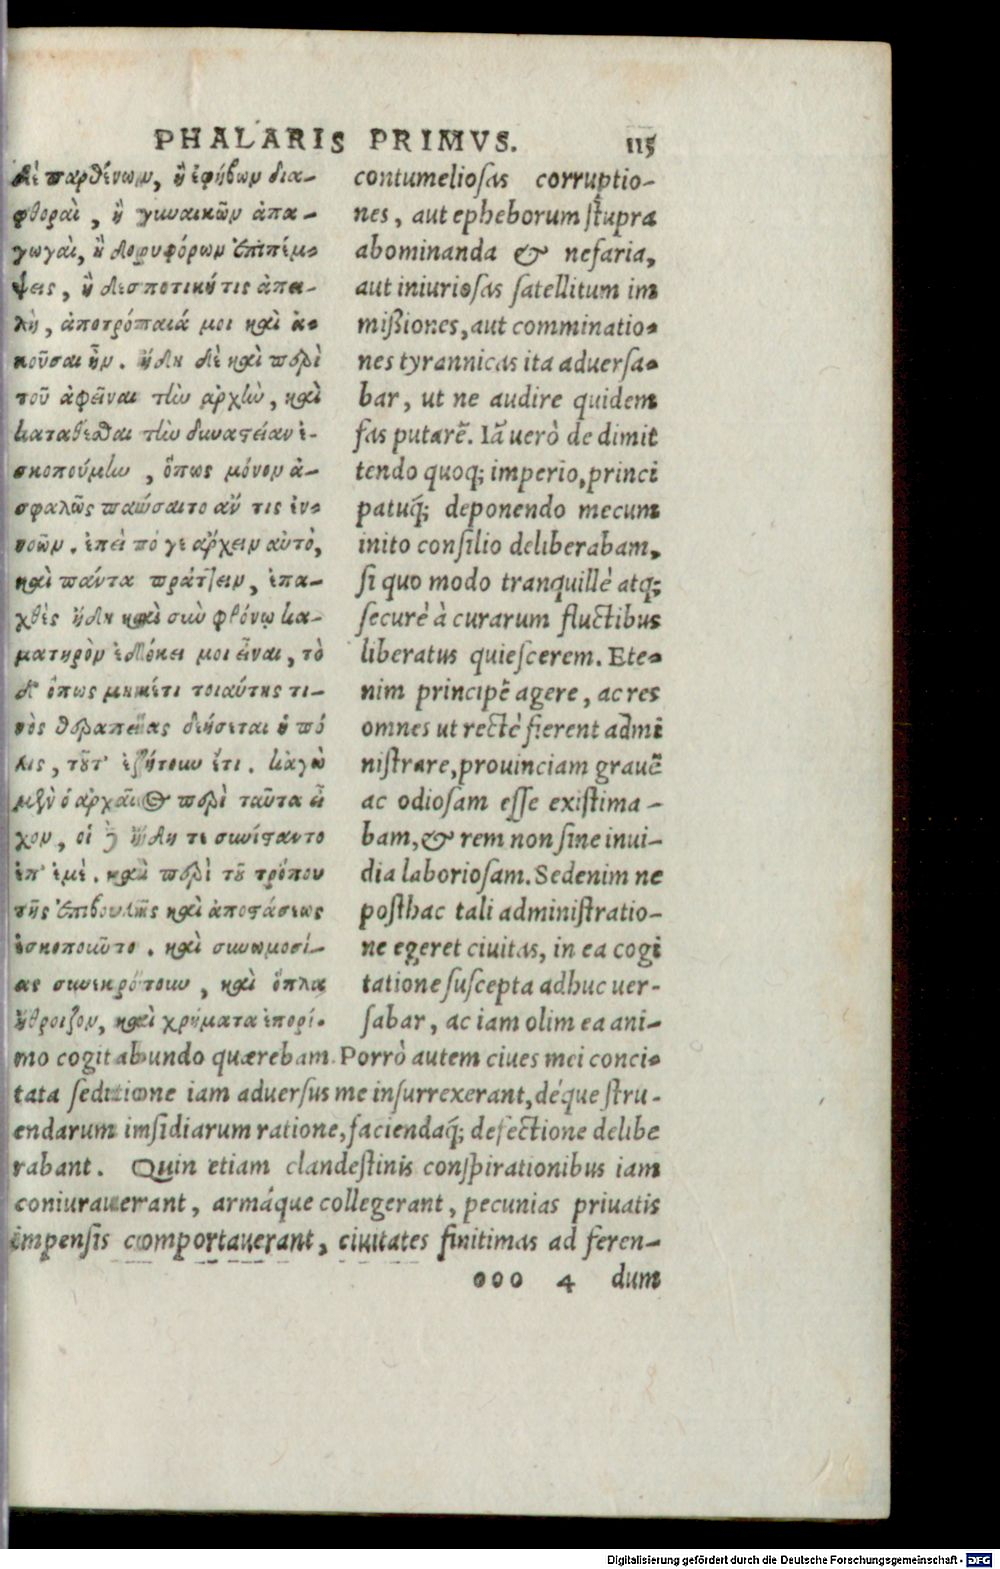 PHALARIS PRIMVS. 115
δὲ παρθένων, ἢ ἐφήβων δια-
φθοραὶ, ἢ γυναικῶν ἀπα-
γωγαὶ, ἢ δορυφόρων ἐπιπέμ-
ψεις, ἢ δεσποτική τις ἀπει-
λὴ, ἀποτρόπαιά μοι καὶ ἀ-
κοῦσαι ἦν. ἤδη δὲ καὶ περὶ
τοῦ ἀφεῖναι τὴν ἀρχὴν, καὶ
καταθέσθαι τὴν δυναστείαν ἐ-
σκοπούμην, ὅπως μόνον ἀ-
σφαλῶς παύσαιτο ἄν τις ἐν-
νοῶν. ἐπεὶ τό γε ἄρχειν αὐτὸ,
καὶ πάντα πράττειν, ἐπα-
χθὲς ἤδη καὶ σὺν φθόνῳ κα-
ματηρὸν ἐδόκει μοι εἶναι, τὸ
δ' ὅπως μηκέτι τοιαύτης τι-
νὸς θεραπείας δεήσεται ἡ πό
λις, τοῦτ' ἐζήτουν ἔτι. κἀγὼ
μὲν ὁ ἀρχαῖος περὶ ταῦτα εἶ
χον, οἱ δὲ ἤδη τε συνίσταντο
ἐπ' ἐμὲ. καὶ περὶ τοῦ τρόπου
τῆς ἐπιβουλῆς καὶ ἀποστάσεως
ἐσκοποῦντο. καὶ συνωμοσί-
ας συνεκρότουν, καὶ ὅπλα
ἤθροιζον, καὶ χρήματα ἐπορί-
contumeliosas corruptio-
nes, aut epheborum stupra
abominanda & nefaria,
aut iniuriosas satellitum im
missiones, aut comminatio-
nes tyrannicas ita aduersa-
bar, ut ne audire quidem
fas putarẽ. Iã uerò de dimit
tendo quoq; imperio, princi
patuq́; deponendo mecum
inito consilio deliberabam,
si quo modo tranquillè atq;
securè à curarum fluctibus
liberatus quiescerem. Ete-
nim principẽ agere, ac res
omnes ut rectè fierent admi
nistrare, prouinciam grauẽ
ac odiosam esse existima-
bam, & rem non sine inui-
dia laboriosam. Sedenim ne
posthac tali administratio-
ne egeret ciuitas, in ea cogi
tatione suscepta adhuc uer-
sabar, ac iam olim ea ani-
mo cogitabundo quærebam. Porrò autem ciues mei conci-
tata seditione iam aduersus me insurrexerant, déque stru-
endarum imsidiarum ratione, faciendaq́; defectione delibe
rabant. Quin etiam clandestinis conspirationibus iam
coniurauerant, armáque collegerant, pecunias priuatis
impensis comportauerant, ciuitates finitimas ad feren-
ooo 4 dum
Digitalisierung gefördert durch die Deutsche Forschungsgemeinschaft - DFG